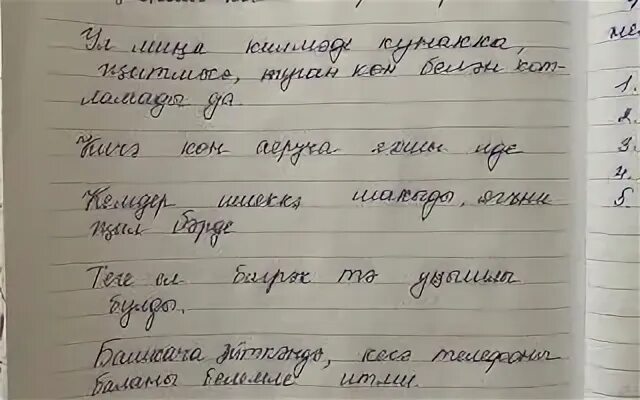 Ул миңа килмәде кунакка,
җитмәсә, туган көн белән кот-
ламады да.
Кичә көн аеруча яхшы иде
Кемдер ишеккә шакыды, ягъни
җил бәрде
Теге ел бигрәк тә уңышлы
булды.
Башкача әйткәндә, кесә телефоны
баланы белемле итми.
1.
2.
3.
4.
5.